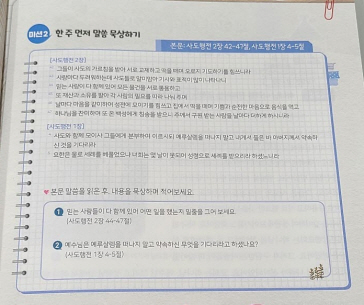 미션 2 한 주 먼저 말씀 묵상하기
본문: 사도행전 2장 42-47절, 사도행전 1장 4-5절
[사도행전 2장]
그들이 사도의 가르침을 받아 서로 교제하고 떡을 떼며 오로지 기도하기를 힘쓰니라
사람마다 두려워하는데 사도들로 말미암아 기사와 표적이 많이 나타나니
믿는 사람이 다 함께 있어 모든 물건을 서로 통용하고
또 재산과 소유를 팔아 각 사람의 필요를 따라 나눠 주며
날마다 마음을 같이하여 성전에 모이기를 힘쓰고 집에서 떡을 떼며 기쁨과 순전한 마음으로 음식을 먹고
하나님을 찬미하며 또 온 백성에게 칭송을 받으니 주께서 구원 받는 사람을 날마다 더하게 하시니라
[사도행전 1장]
사도와 함께 모이사 그들에게 분부하여 이르시되 예루살렘을 떠나지 말고 내게서 들은 바 아버지께서 약속하
신 것을 기다리라
요한은 물로 세례를 베풀었으나 너희는 몇 날이 못되어 성령으로 세례를 받으리라 하셨느니라
♥ 본문 말씀을 읽은 후, 내용을 묵상하며 적어보세요.
1 믿는 사람들이 다 함께 있어 어떤 일을 했는지 밑줄을 그어 보세요.
(사도행전 2장 44-47절)
2 예수님은 예루살렘을 떠나지 말고 약속하신 무엇을 기다리라고 하셨나요?
(사도행전 1장 4-5절)